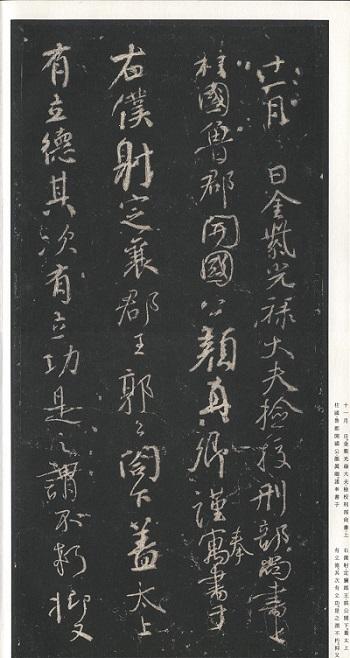 十一月 日金紫光禄大夫檢校刑部尚書上
柱國魯郡開國公顏真卿謹奉寓書于
右僕射定襄郡王郭公閤下蓋太上
有立德其次有立功是之謂不朽抑又
十一月 日金紫光祿大夫檢校刑部尚書上
柱國魯郡開國公顏真卿謹奉書于
右僕射定襄郡王郭公閤下蓋太上
有立德其次有立功是之謂不朽抑又